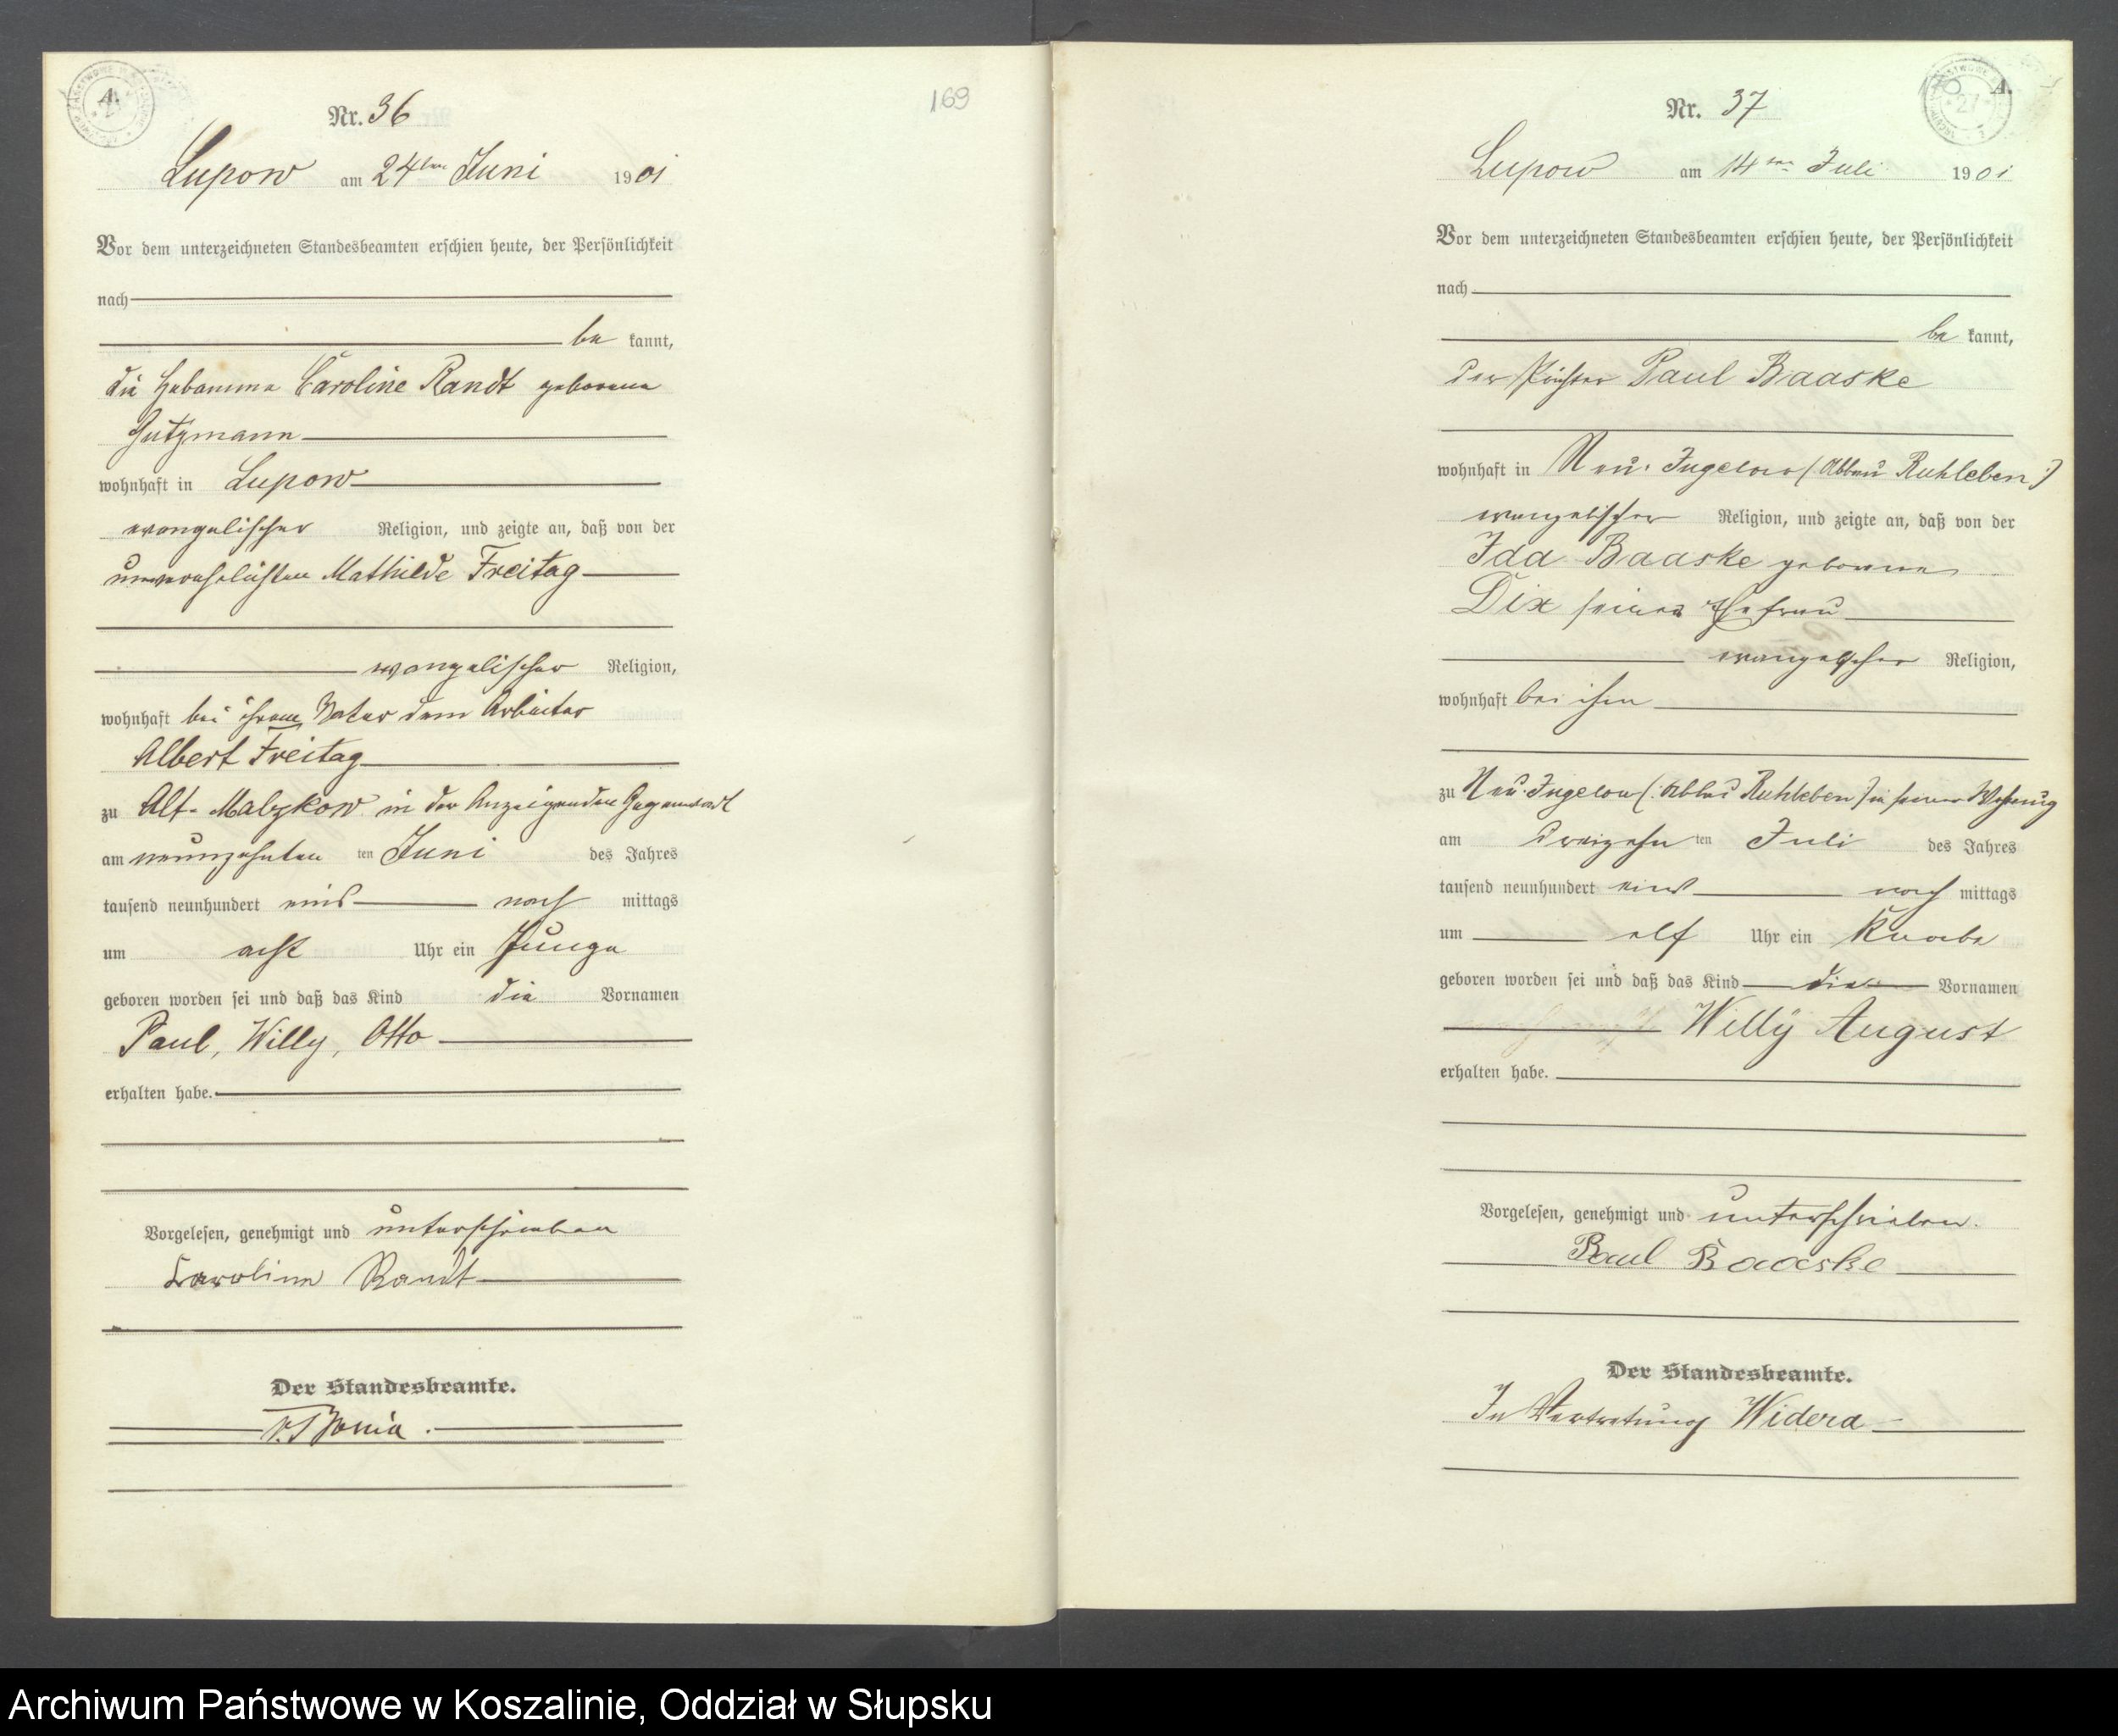 A.
Nr. 36
169
Lupow am 24ten Juni 1901
Vor dem unterzeichneten Standesbeamten erschien heute, der Persönlichkeit
nach
be kannt,
die Hebamme Caroline Randt geborene
Gutzmann
wohnhaft in Lupow
evangelischer Religion, und zeigte an, daß von der
unverehelichten Mathilde Freitag
evangelischer Religion,
wohnhaft bei ihrem Vater dem Arbeiter
Albert Freitag
zu Alt-Malzkow in der Anzeigenden Gegenwart
am neunzehnten ten Juni des Jahres
tausend neunhundert eins nach mittags
um acht Uhr ein Junge
geboren worden sei und daß das Kind die Vornamen
Paul, Willy, Otto
erhalten habe.
Vorgelesen, genehmigt und unterschrieben
Caroline Randt
Der Standesbeamte.
A.
Nr. 37
Lupow am 14ten Juli 1901
Vor dem unterzeichneten Standesbeamten erschien heute, der Persönlichkeit
nach
be kannt,
der Paul Baaske
wohnhaft in Neu-Jugelow (Abbau Ruhleben)
evangelischer Religion, und zeigte an, daß von der
Ida Baaske geborene
Dix seiner Ehefrau
evangelischer Religion,
wohnhaft bei ihm
zu Neu-Jugelow (: Abbau Ruhleben) in seiner Wohnung
am dreizehn ten Juli des Jahres
tausend neunhundert eins nach mittags
um elf Uhr ein Knabe
geboren worden sei und daß das Kind die Vornamen
Willy August
erhalten habe.
Vorgelesen, genehmigt und unterschrieben.
Paul Baaske
Der Standesbeamte.
In Vertretung Widera
Archiwum Państwowe w Koszalinie, Oddział w Słupsku